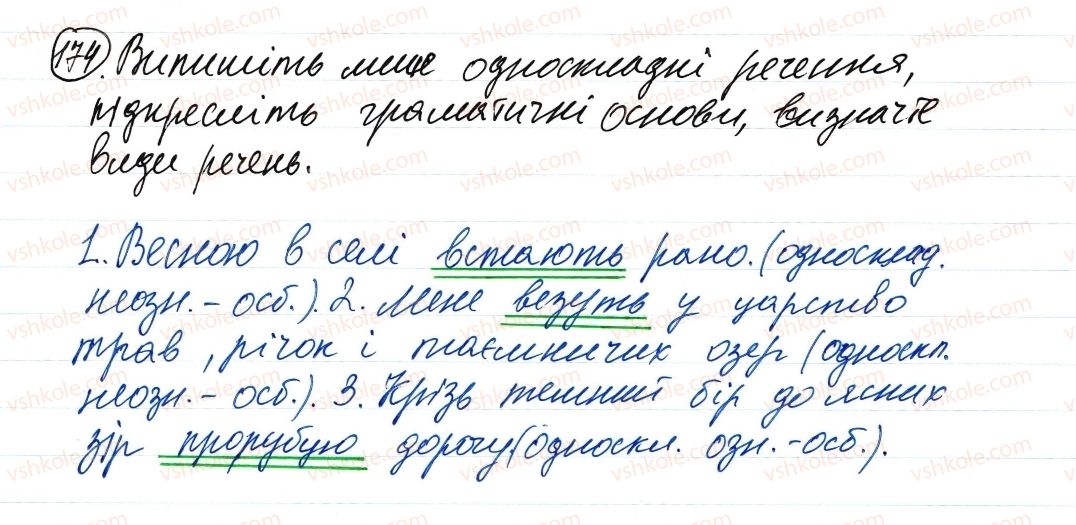 174. Випишіть лише односкладні речення,
підкресліть граматичні основи, визначте
види речень.
1. Весною в селі встають рано. (односклад.
неозн.-особ.). 2. Мене везуть у царство
трав, річок і таємничих озер (односкл.
неозн.-особ.). 3. Крізь темний бір до ясних
зір прорубую дорогу. (односкл. озн.-особ.).